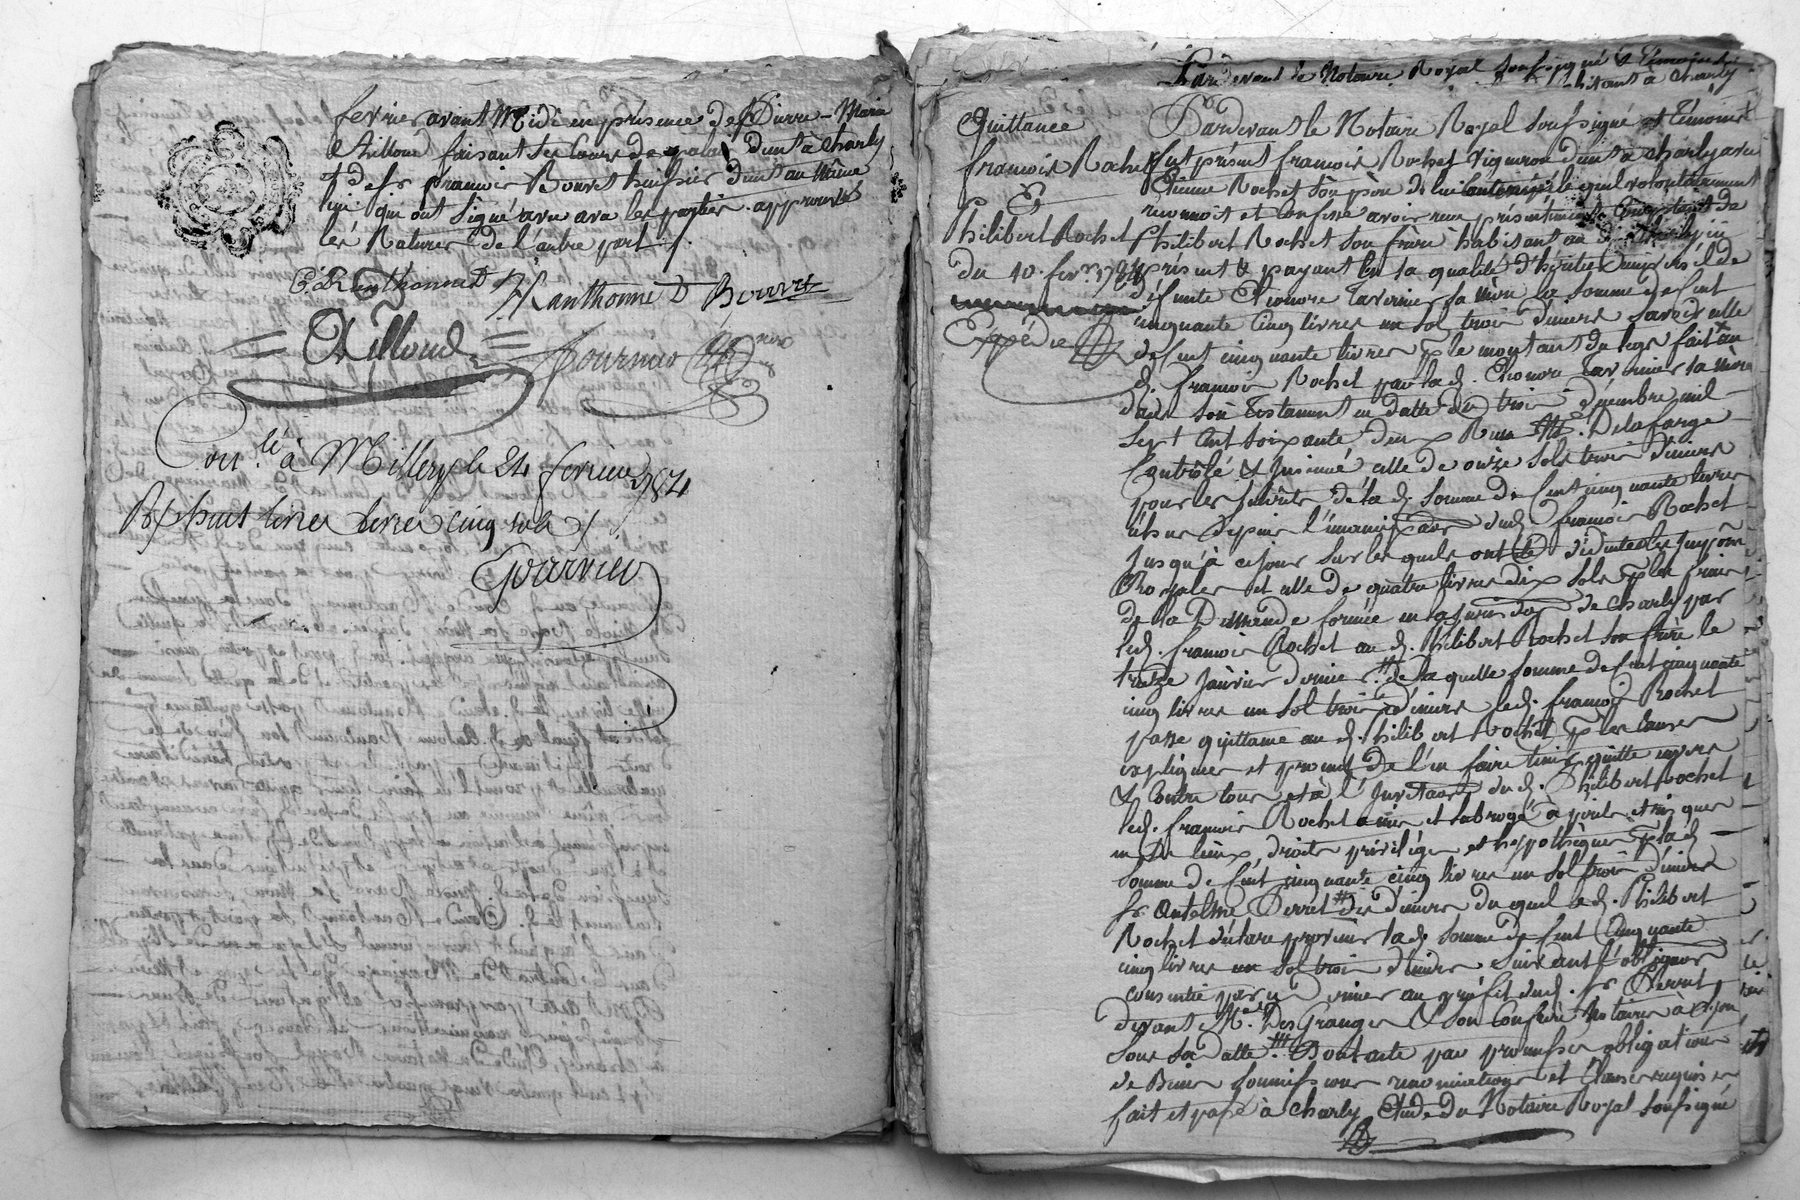 fevrier avant Midi en présence de Pierre-Marie
Ailloud faisant ses Cours de palai dmt à charly
& de sr francois Bouvet huissier dmt au même
lieu qui ont signé avec les parties. approuvés
les Ratures de l'autre part
Ranthonne D Berret
Ailloud
fournier
Con.lé à Millery le 24 fevrier 1784
R/ huit livres cinq sols
fournier
Pardevant le Notaire Royal soussigné & Témoins
à charly
Quittance
francois Rochet
&
Philibert Rochet
du 10 fevr. 1784
Expédié
Pardevant le Notaire Royal soussigné et témoins
fut présent francois Rochet vigneron dmt à charly avec
Etienne Rochet son père de lui lequel volontairement
reconnoit et confesse avoir reçu présentement de
Philibert Rochet son frère habitant
présent & payant en sa qualité d'héritier universel de
défunte Eleonore Tavernier sa mère la somme de Cent
cinquante Cinq livres un sol trois deniers savoir celle
de Cent cinquante livres pr le montant du legs fait au
d. francois Rochet par lad. Eleonore Tavernier sa mère
dans son Testament en datte du trois décembre mil
sept Cent soixante deux Reçu Me. Delafarge
Contrôlé & Insinué celle de onze sols trois deniers
pour les intérêts de lad. somme de Cent cinquante livres
échus depuis l'émancipaon dud. francois Rochet
jusqu'à ce jour sur lesquels ont été déduites les Impoons
Royales et celle de quatre livres dix sols pr les frais
de la Demande formée en la juridon de charly par
led. francois Rochet au d. Philibert Rochet son frère le
treize Janvier dernier de la quelle somme de Cent cinquante
cinq livres un sol trois deniers led. francois Rochet
passe quittance au d. Philibert Rochet pr les causes
expliquées et promet de l'en faire tenir quitte envers
& contre tous et à l'Invitaon dud. Philibert Rochet
led. francois Rochet a mis et subrogé à périls et risques
en ses lieux, droits privilèges et hypothèques pr lad.
somme de Cent cinquante cinq livres un sol trois deniers
sr Antelme Perret des deniers du quel led. Philibert
Rochet déclare provenir lad. somme de Cent Cinquante
cinq livres un sol trois deniers suivant l'obligaon
consentie par ce dernier au profit dud. sr Perret
devant Me. Des Granges & son confrère Notaires à Lyon
sous sa datte. Dont acte par promesses obligations
de Biens soumissions renonciations et Clauses requises
fait et passé à charly Etude du Notaire Royal soussigné